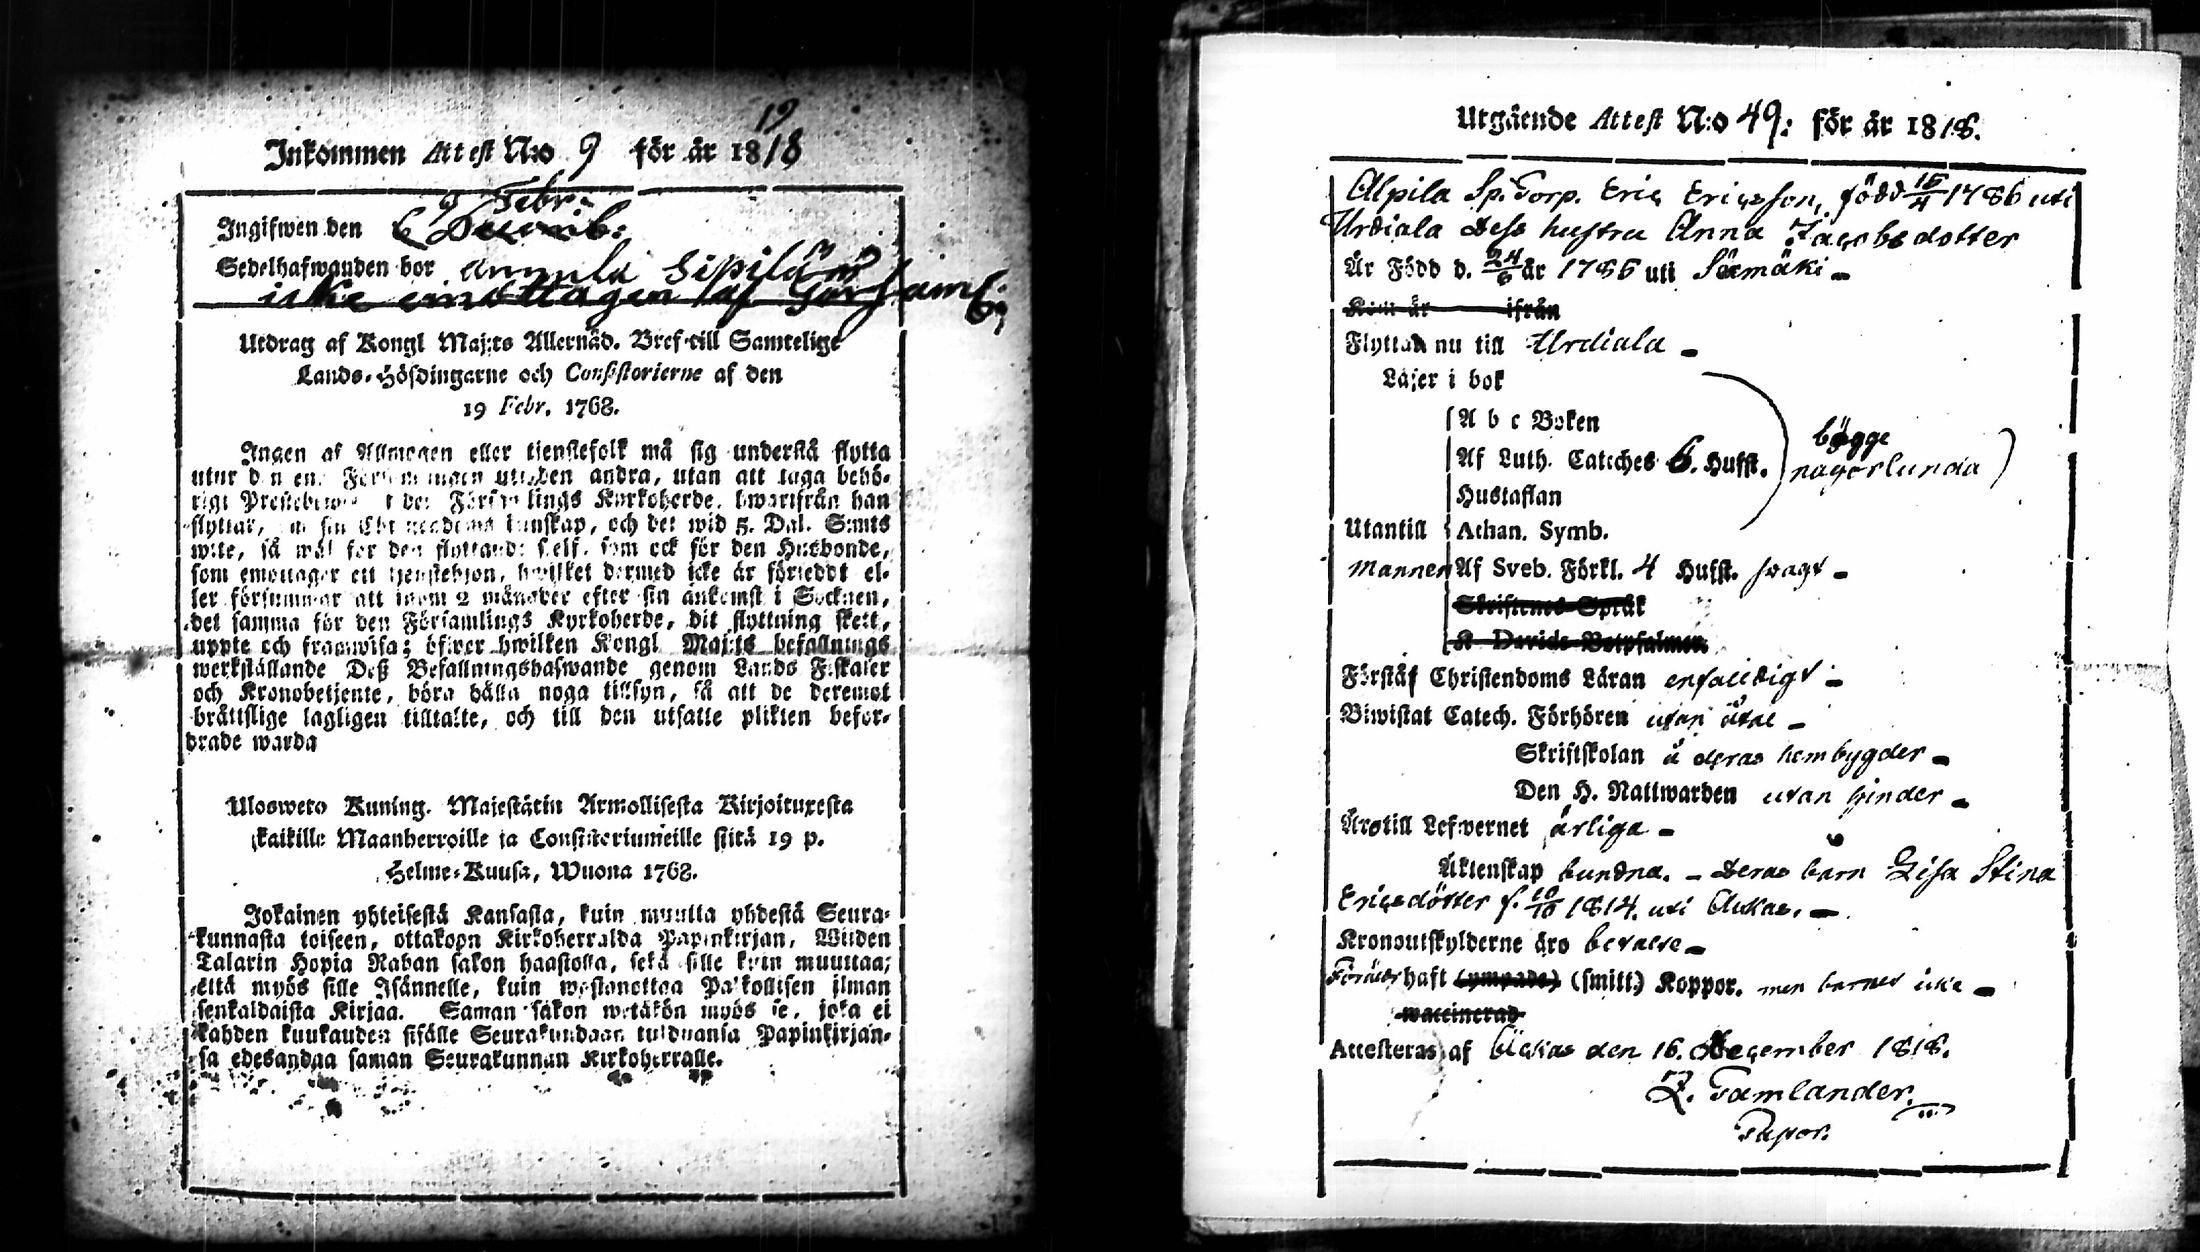 19
Inkommen Attest N:o 9 för år 1818
9 Febr:
Ingifwen den 6 Decemb:
Sedelhafwanden bor Annula Sipilä
icke emottagen af Församl:
Utdrag af Kongl Maj:ts Allernåd. Bref till Samtelige
Lands-Höfdingarne och Consistorierne af den
19 Febr. 1768.
Ingen af Allmogen eller tienstefolk må sig understå flytta
utur den ena Församlingen uti den andra, utan att taga behö-
rigt Prestebewis af den Församlings Kyrkoherde, hwarifrån han
flyttar, om sin Christendoms kunskap, och det wid 5. Dal. S:mts
wite, så wäl för den flyttande sielf, som ock för den Husbonde,
som emottager ett tjenstehjon, hwilket dermed icke är försedt el-
ler försummar att inom 2 månader efter sin ankomst i Socknen,
det samma för den Församlings Kyrkoherde, dit flyttning skett,
uppte och framwisa; öfwer hwilken Kongl Maj:ts befallnings
werkställande Deß Befallningshafwande genom Lands Fiskaler
och Kronobetjente, böra hålla noga tillsyn, så att de deremot
bråttslige lagligen tilltalte, och till den utsatte plikten befor-
drade warda
Uloswето Kuning. Majestätin Armollisesta Kirjoituxesta
kaikille Maanherroille ja Consistoriumeille siitä 19 p.
Helme-Kuusa, Wuona 1768.
Jokainen yhteisestä Kansasta, kuin muutta yhdestä Seura-
kunnasta toiseen, ottakopn Kirkoherralda Papinkirjan, Wiiden
Talarin Hopia Rahan sakon haastolla, sekä sille kuin muuttaa;
että myös sille Isännelle, kuin wastanottaa Palkollisen ilman
senkaldaista Kirjaa. Saman sakon wetäkön myös se, joka ei
kahden kuukauden sisälle Seurakundaan tulduansa Papinkirjan-
sa edesandaa saman Seurakunnan Kirkoherralle.
Utgående Attest N:o 49: för år 1818.
Alpila Sp. Torp. Eric Ericsson, född 15/4 1786 uti
Urdiala Dess hustru Anna Jacobsdotter
Är Född d. 24/6 år 1786 uti Säämäki -
Kom år ifrån
Flyttad nu till Urdiala -
Läser i bok
A b c Boken
Af Luth. Cateches 6. Hufst. bägge
någorlunda
Hustaflan
Utantill Athan. Symb.
mannen Af Sveb. Förkl. 4 Hufst. svagt -
Skriftenes Språk
K Davids Botpsalmer
Förstår Christendoms Läran enfaldigt -
Biwistat Catech. Förhören utan åtal -
Skriftskolan å deras hembygder -
Den H. Nattwarden utan hinder -
Äro till Lefwernet ärliga -
Äktenskap bundna. - Deras barn Lisa Stina
Ericsdotter f. 10/10 1814. uti Ackas. -
Kronoutskylderne äro betalte -
Föräldr haft (ympade) (smitt.) Koppor. men barnet icke -
waccinerad
Attesteras af Ackas den 16. December 1818.
Z. Tamlander.
Pastor.